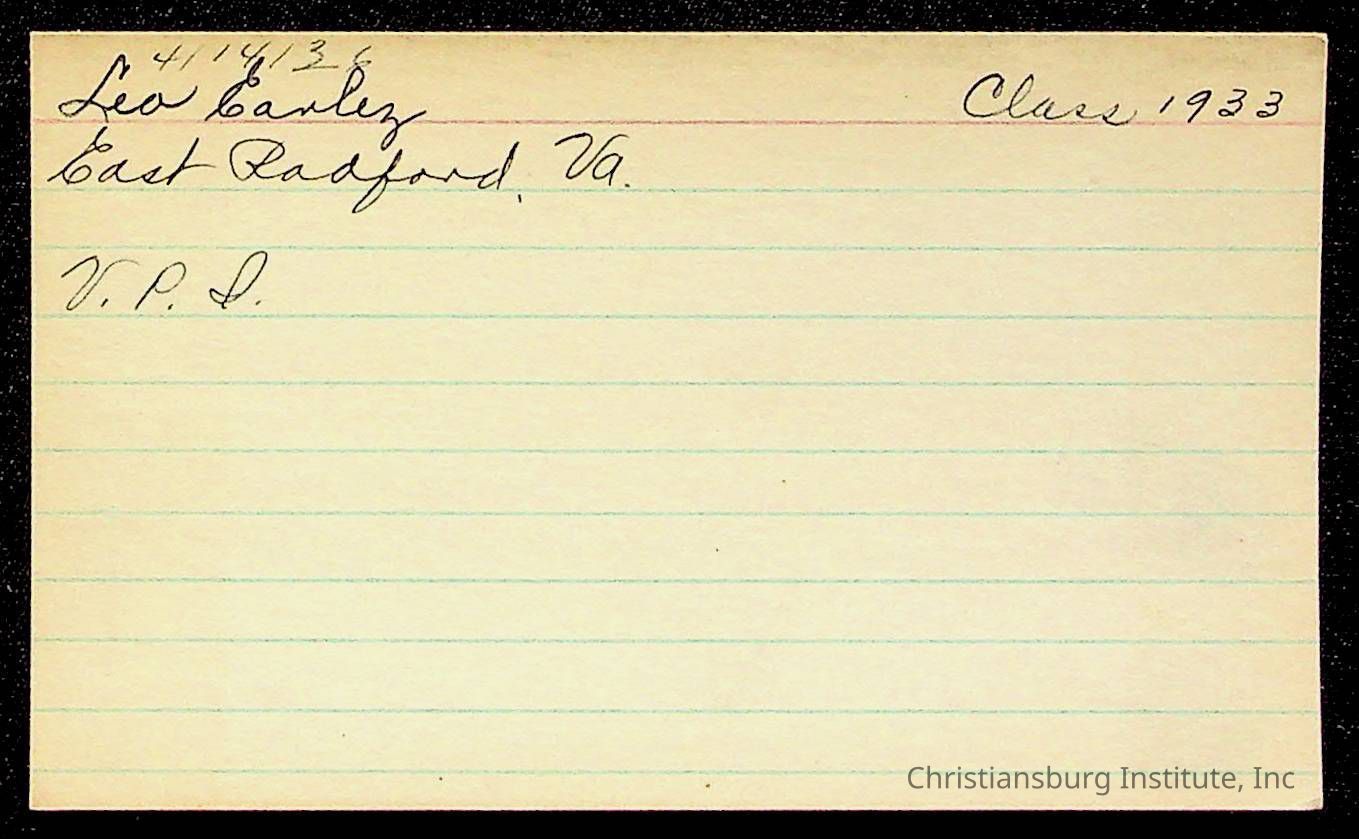 4/14/36
Leo Earley Class 1933
East Radford, Va.
V. P. I.
Christiansburg Institute, Inc